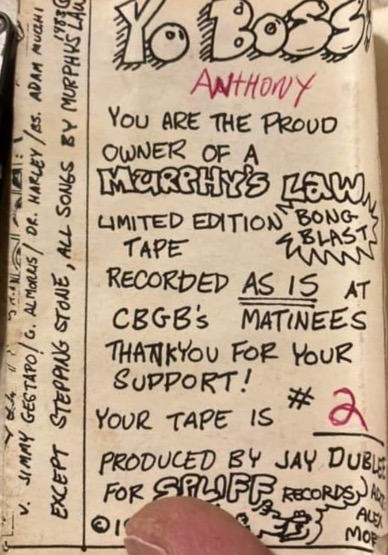 YO BOSS
ANTHONY
YOU ARE THE PROUD
OWNER OF A
MURPHY'S LAW
LIMITED EDITION BONG
TAPE BLAST
RECORDED AS IS AT
CBGB's MATINEES
THANKYOU FOR YOUR
SUPPORT!
YOUR TAPE IS # 2
PRODUCED BY JAY
FOR SPLIFF RECORDS
©
V. JIMMY GESTAPO/G. ALMORRIS/DR. HARLEY/BS. ADAM MUCHI
EXCEPT STEPPING STONE, ALL SONGS BY MURPHY'S LAW